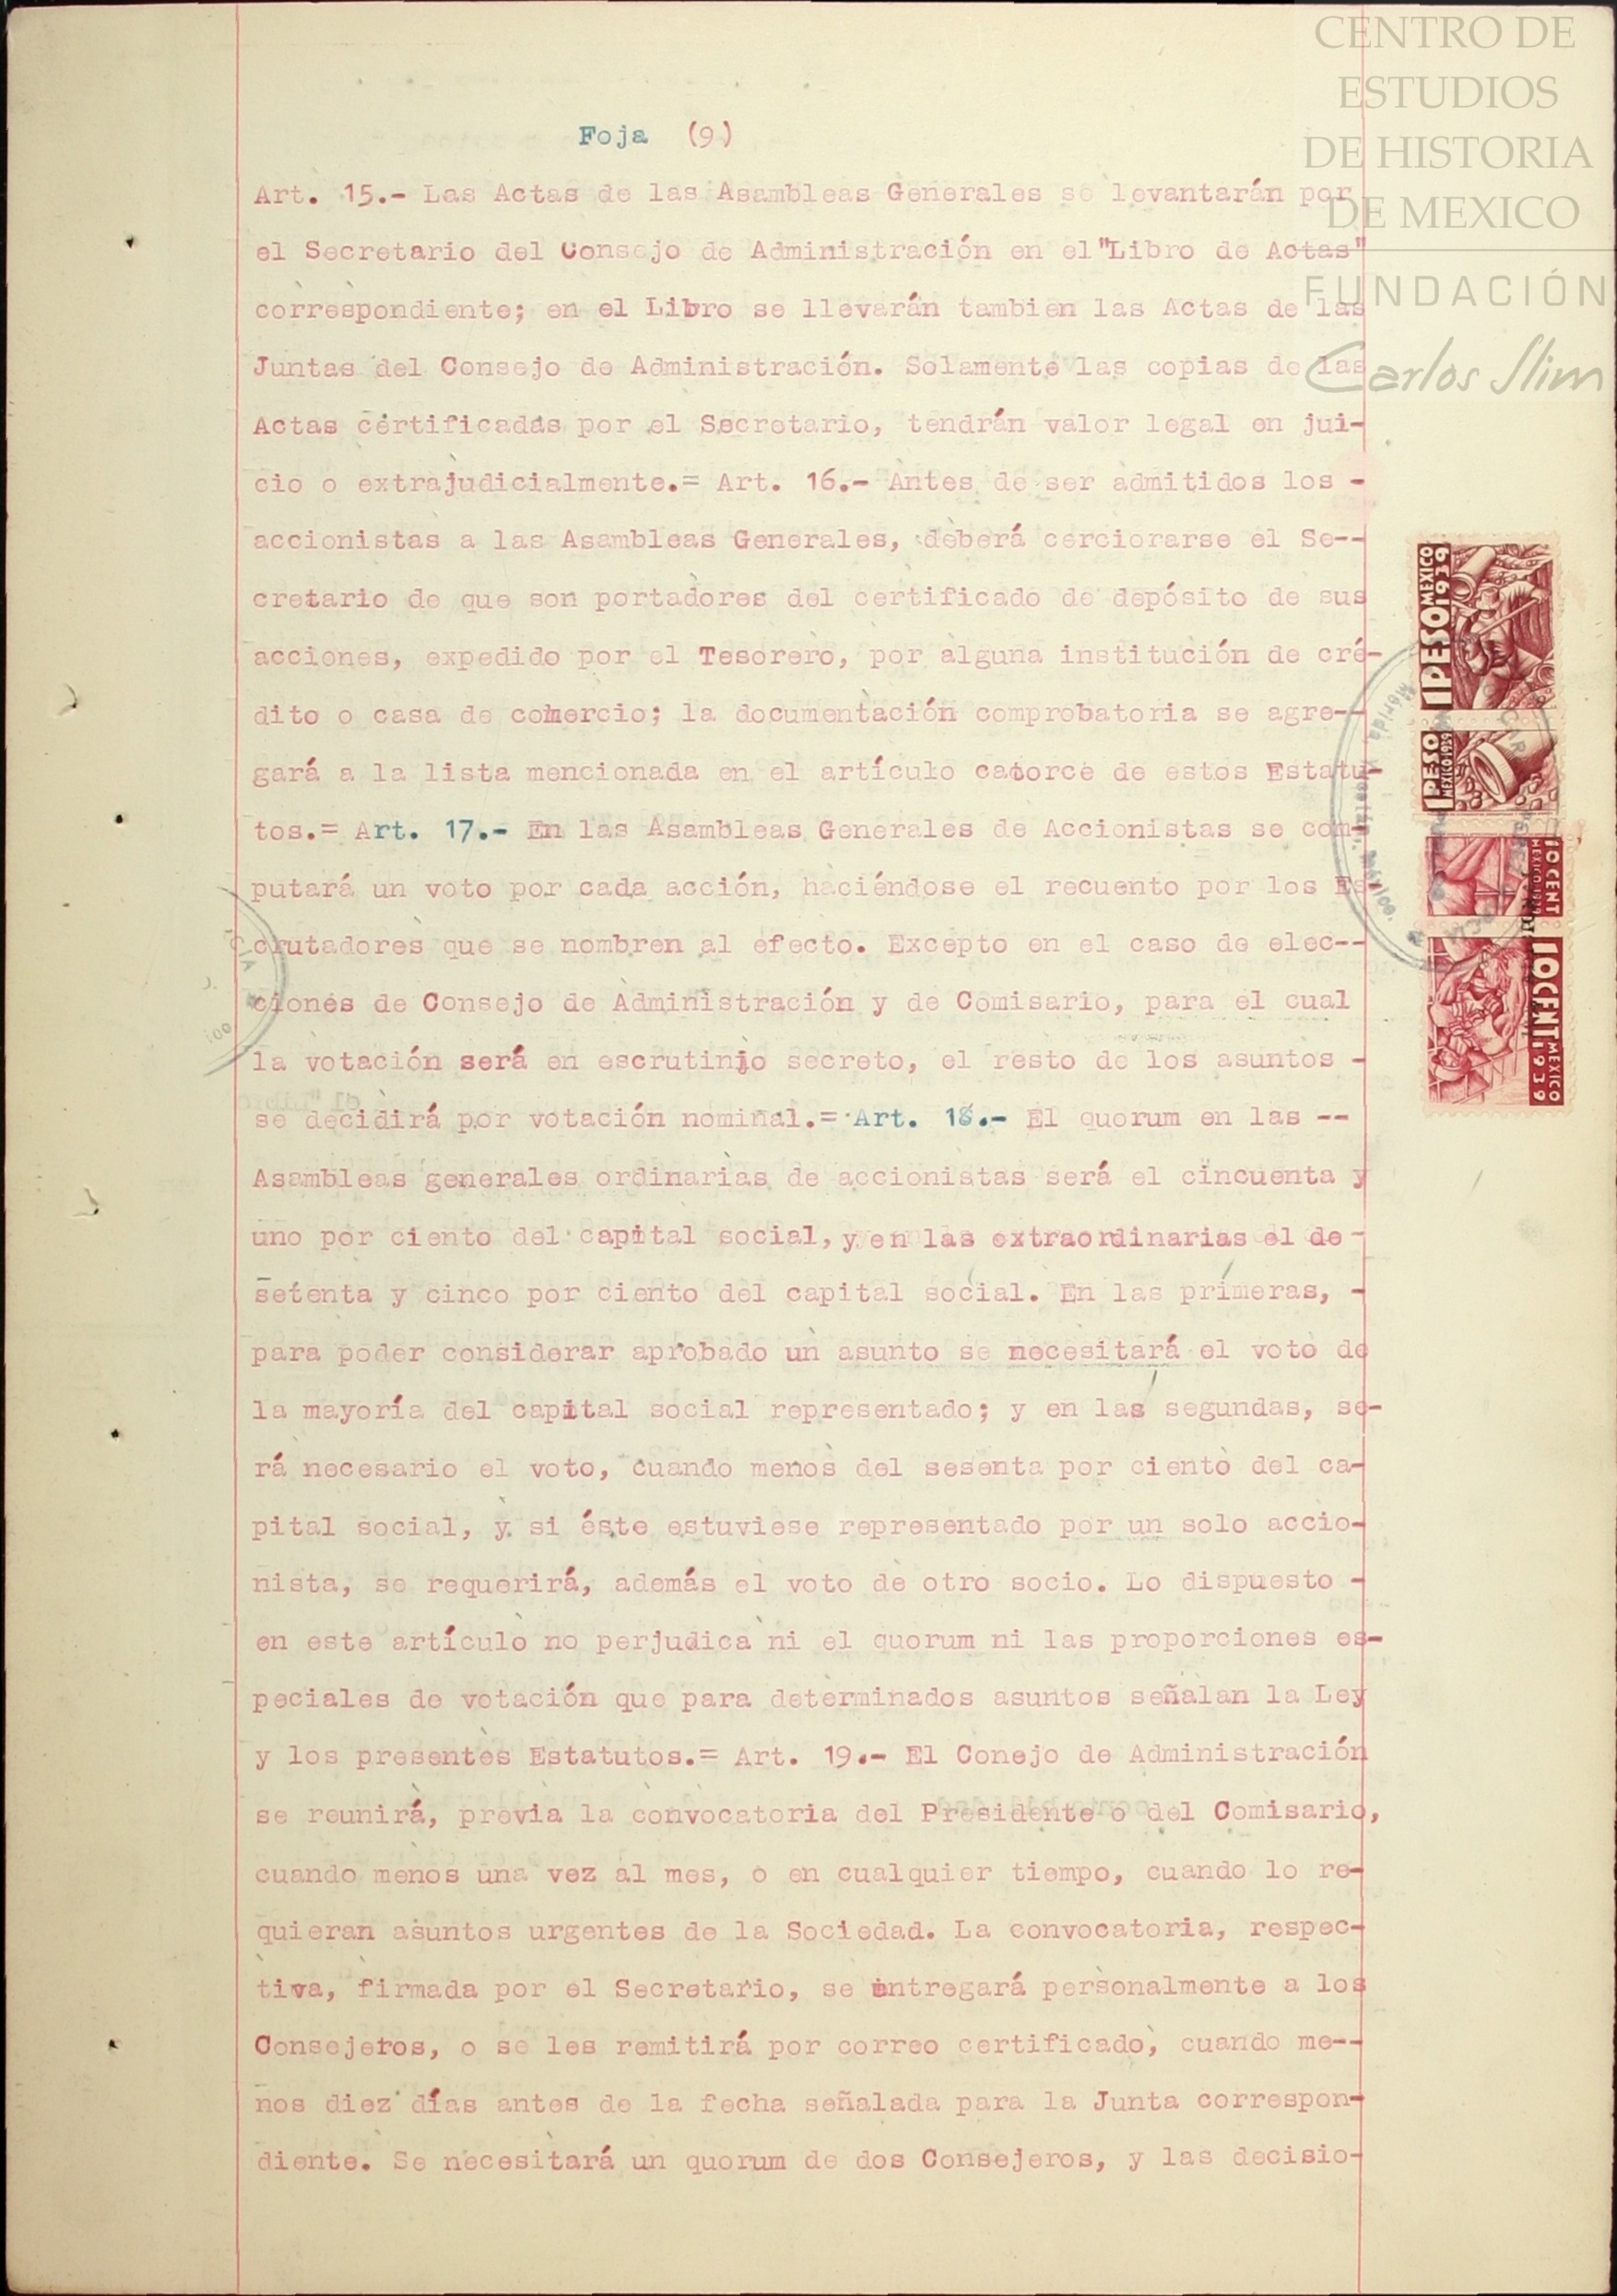 CENTRO DE
ESTUDIOS
DE HISTORIA
DE MEXICO
FUNDACIÓN
Carlos Slim
Foja (9)
Art. 15.- Las Actas de las Asambleas Generales se levantarán por
el Secretario del Consejo de Administración en el "Libro de Actas"
correspondiente; en el Libro se llevarán tambien las Actas de las
Juntas del Consejo de Administración. Solamente las copias de las
Actas certificadas por el Secretario, tendrán valor legal en jui-
cio o extrajudicialmente.= Art. 16.- Antes de ser admitidos los -
accionistas a las Asambleas Generales, deberá cerciorarse el Se--
cretario de que son portadores del certificado de depósito de sus
acciones, expedido por el Tesorero, por alguna institución de cré-
dito o casa de comercio; la documentación comprobatoria se agre--
gará a la lista mencionada en el artículo catorce de estos Estatu-
tos.= Art. 17.- En las Asambleas Generales de Accionistas se com-
putará un voto por cada acción, haciéndose el recuento por los Es
crutadores que se nombren al efecto. Excepto en el caso de elec--
ciones de Consejo de Administración y de Comisario, para el cual
la votación será en escrutinio secreto, el resto de los asuntos -
se decidirá por votación nominal.= Art. 18.- El quorum en las --
Asambleas generales ordinarias de accionistas será el cincuenta y
uno por ciento del capital social, y en las extraordinarias el de -
setenta y cinco por ciento del capital social. En las primeras, -
para poder considerar aprobado un asunto se necesitará el voto de
la mayoría del capital social representado; y en las segundas, se-
rá necesario el voto, cuando menos del sesenta por ciento del ca-
pital social, y si éste estuviese representado por un solo accio-
nista, se requerirá, además el voto de otro socio. Lo dispuesto -
en este artículo no perjudica ni el quorum ni las proporciones es-
peciales de votación que para determinados asuntos señalan la Ley
y los presentes Estatutos.= Art. 19.- El Conejo de Administración
se reunirá, previa la convocatoria del Presidente o del Comisario,
cuando menos una vez al mes, o en cualquier tiempo, cuando lo re-
quieran asuntos urgentes de la Sociedad. La convocatoria, respec-
tiva, firmada por el Secretario, se entregará personalmente a los
Consejeros, o se les remitirá por correo certificado, cuando me--
nos diez días antes de la fecha señalada para la Junta correspon-
diente. Se necesitará un quorum de dos Consejeros, y las decisio-
1 PESO MEXICO 1939
1 PESO MEXICO-1939
10 CENT MEXICO
10 CENT MEXICO 1939